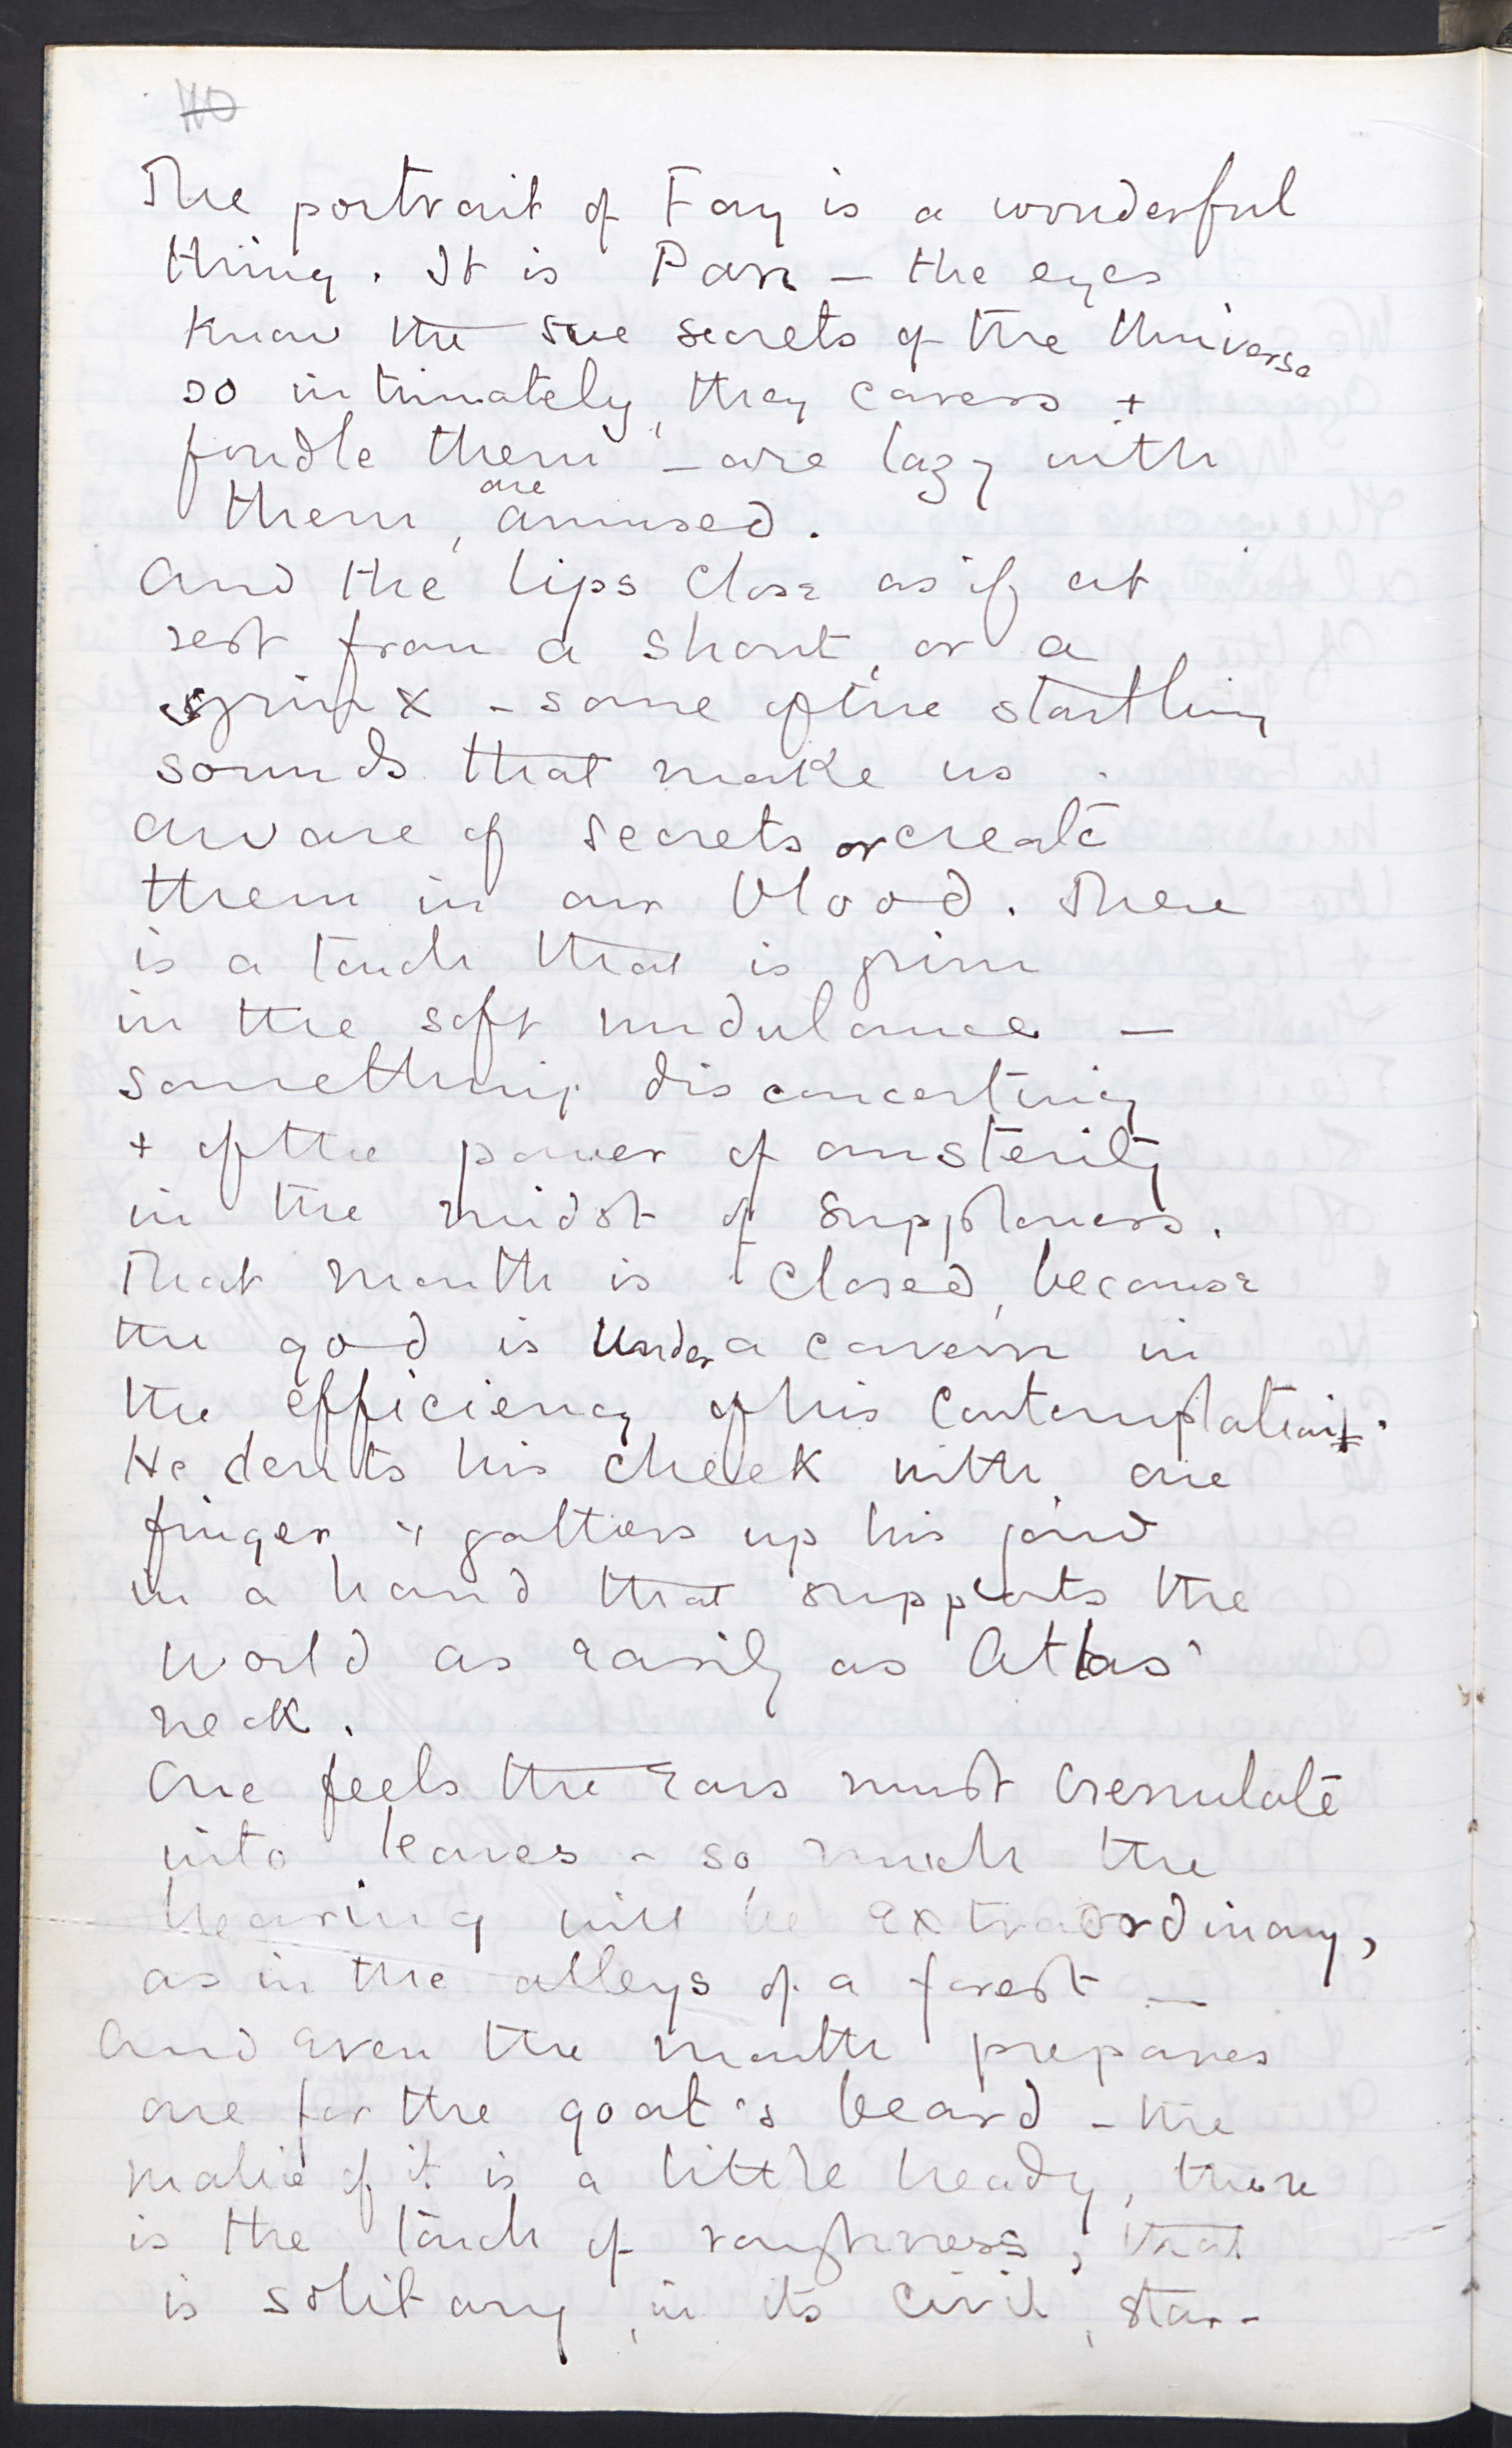 110
The portrait of Fay is a wonderful
thing. It is Pan – the eyes
know the secrets of the Universe
so intimately, they caress +
fondle them – are lazy with
them, are amused.
And the lips close as if at
rest from a shout, or a
syrinx – some of the startling
sounds that make us
aware of secrets or create
them in our blood. There
is a touch that is grim
in the soft undulance –
something disconcerting
+ of the power of austerity
in the midst of suppleness.
That mouth is closed, because
the god is under a cavern in
the efficiency of his contemplation.
He dents his cheek with one
finger & gathers up his jaw
in a hand that supports the
world as easily as Atlas'
neck.
One feels the ears must crenulate
into leaves – so much the
hearing will be extraordinary,
as in the alleys of a forest –
And even the mouth prepares
one for the goat's beard – the
malice of it is a little heady, there
is the touch of roughness, that
is solitary, in its civil, star-